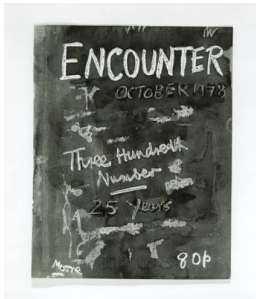 ENCOUNTER
OCTOBER 1978
Three Hundredth
Number
25 Years
Moore
80p